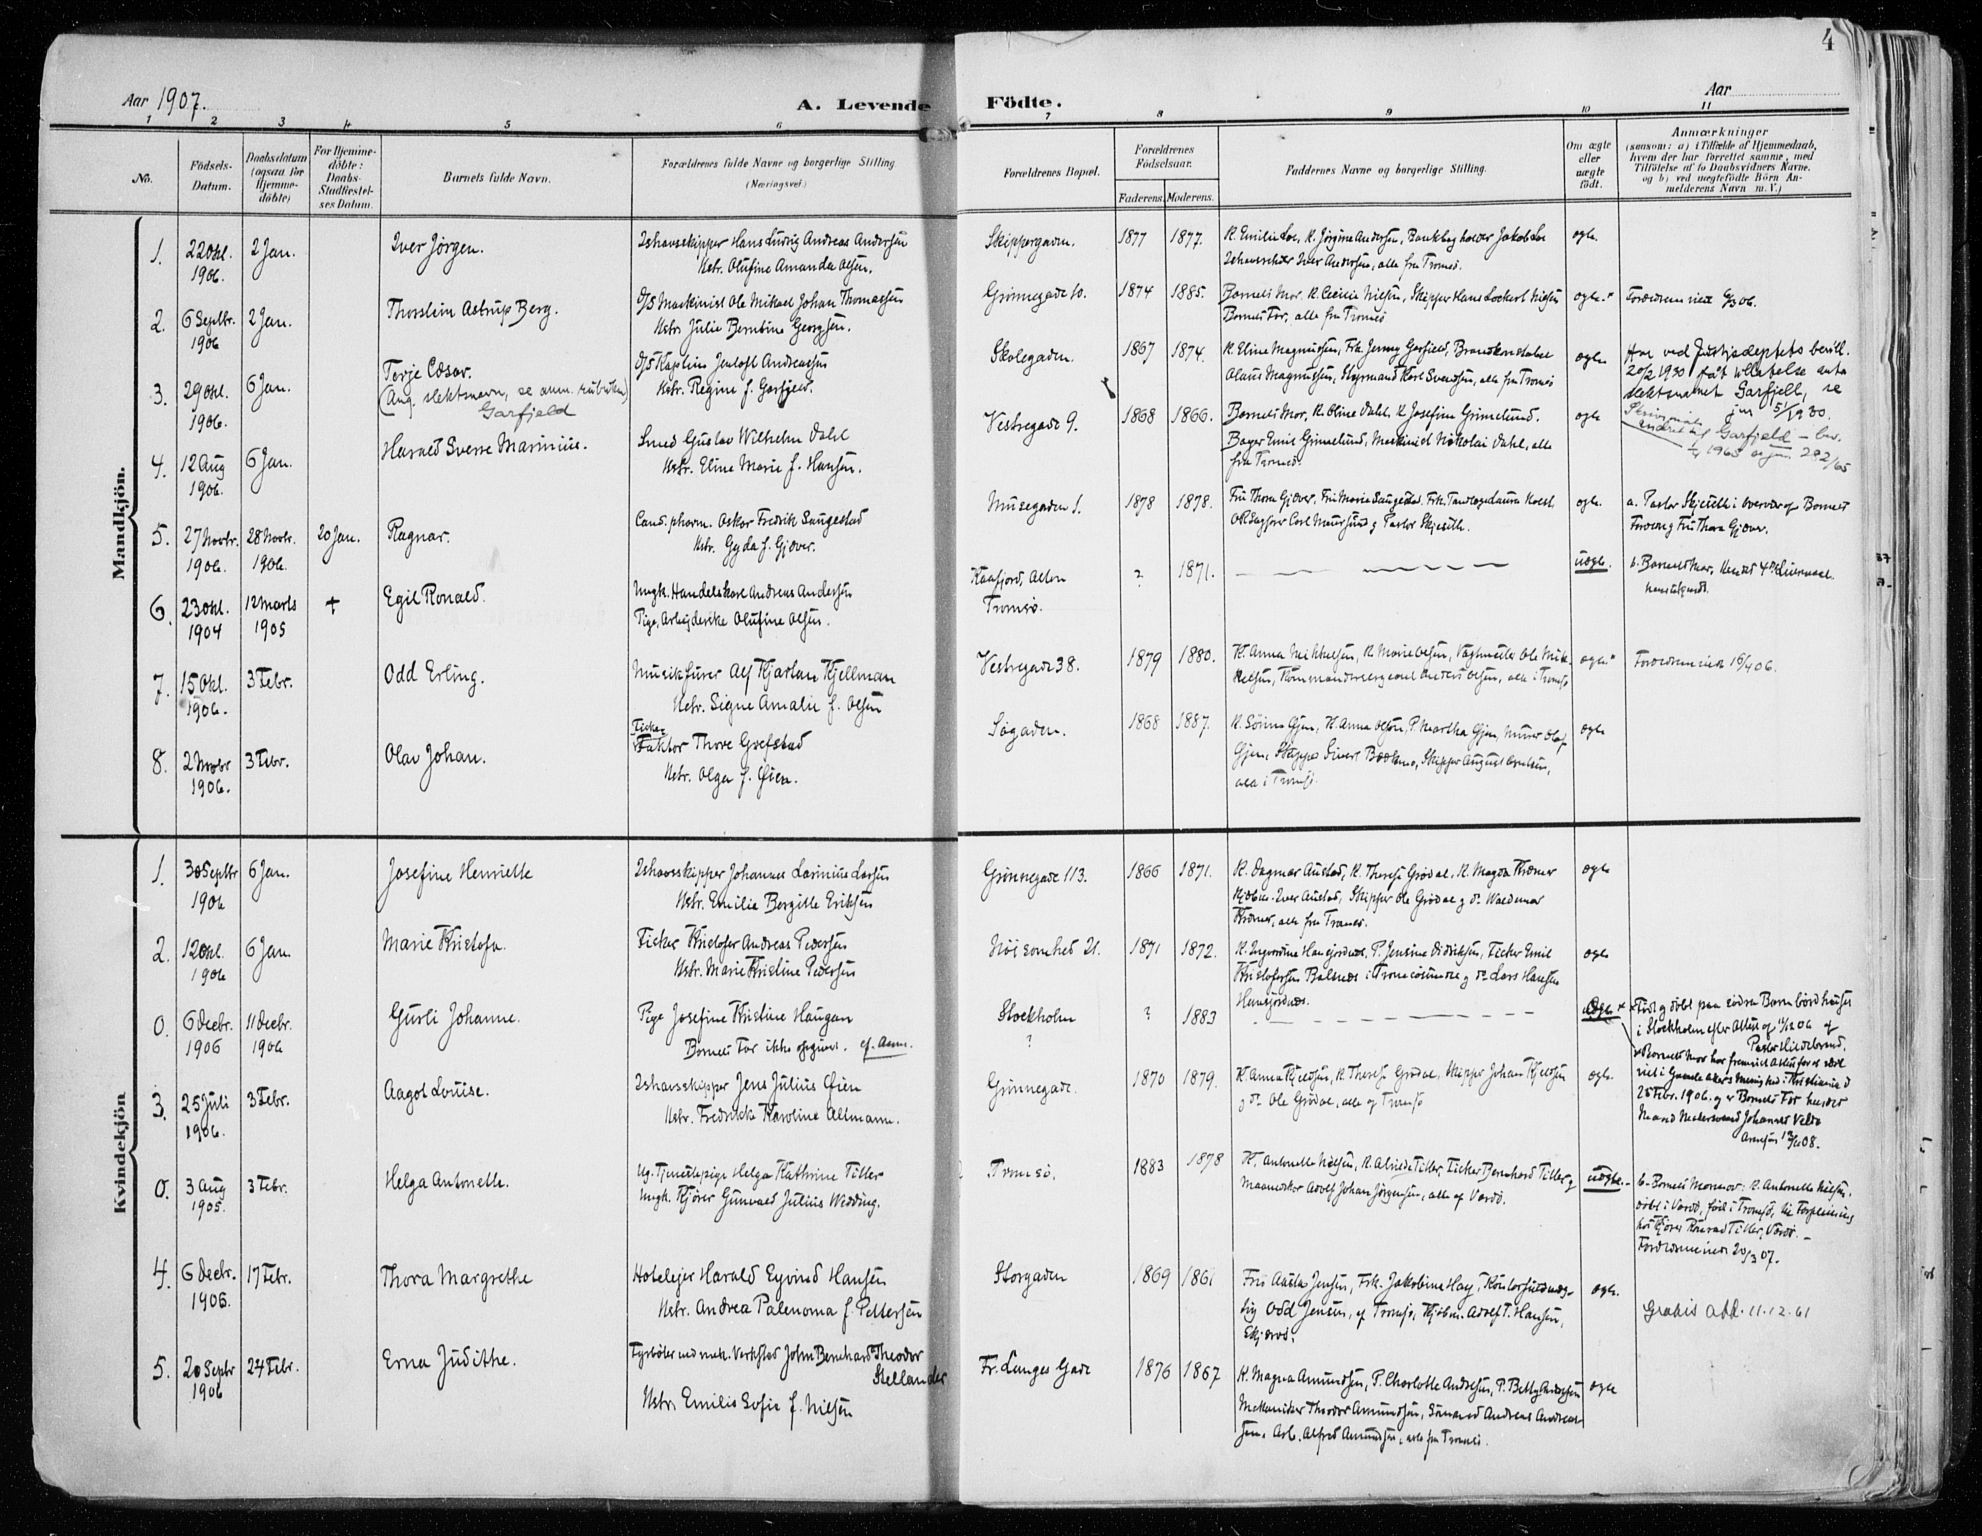 4
Aar 1907.
A. Levende Födte.
Aar
1 2 3 4 5 6 7 8 9 10 11
No.
Födsels-Datum.
Daabsdatum (ogsaa for Hjemmedöbte)
For Hjemmedöbte: Daabs-Stadfæstelses Datum.
Barnets fulde Navn.
Forældrenes fulde Navne og borgerlige Stilling (Næringsvei)
Forældrenes Bopæl.
Forældrenes Födselsaar.
Faderens. Moderens.
Faddernes Navne og borgerlige Stilling.
Om ægte eller uægte födt.
Anmærkninger
(saasom: a) i Tilfælde af Hjemmedaab, hvem der har forrettet samme, med Tilföielse af to Daabsvidners Navne. og b) ved uægtefödte Börn Anmelderens Navn m. V.)
Mandkjön.
1. 22 Okt. 1906. 2 Jan. Iver Jørgen.
Ishavsskipper Hans Ludvig Andreas Andersen
Hstr. Olufine Amanda Olsen.
Skippergaden. 1877 1877.
K. Emilie Loe, K. Jørgine Andersen, Jakob Loe
Iver Andersen, alle fra Tromsø.
ægte.
2. 6 Septbr. 1906 2 Jan. Thorstein Astrup Berg.
D/S Maskinist Ole Mikael Johan Thomassen
Hstr. Julie Berntine Georgsen.
Grønnegade 10. 1874 1885.
Barnets Mor. K. Cecilie Nilsen, Skipper Hans Lockert Nilsen
Barnets Far, alle fra Tromsø
ægte.
3. 29 Okt. 1906. 6 Jan. Terje Cæsar.
(Ang. slektsnavn, se anm. rubrikken)
Garfjeld
D/S Kaptein Jentoft Andreassen
Hstr. Regine f. Garfjeld.
Skolegaden. 1867 1874.
K. Eline Magnussen, Frk. Jenny Garfjeld, Brandkonstabel
Olaus Magnussen, Styrmand Karl Svendsen, alle fra Tromsø
ægte
Har ved Justisdeptets bevill.
20/2 1930 fått tillatelse anta
slektsnavnet Garfjell, se
jnr 51/1930.
Garfjeld – bev.
1965 jnr 282/65
4. 12 Aug 1906. 6 Jan. Harald Sverre Marinius.
Smed Gustav Wilhelm Dahl
Hstr. Eline Marie f. Hansen.
Vestregade 9. 1868 1866.
Barnets Mor, K. Oline Dahl, K. Josefine Grinnelund.
Bager Emil Grinnelund, Maskinist Nikolai Dahl, alle
fra Tromsø.
ægte
5. 27 Novbr. 1906. 28 Novbr. 1906. 20 Jan. Ragnar.
Cand. pharm. Oskar Fredrik Saugestad
Hstr. Gyda f. Gjæver.
Musegaden 1. 1878 1878.
Fru Thora Gjæver, Fru Marie Saugestad, Frk. Laura Holst
Carl Maursund og Pastor Skjeseth.
ægte.
a. Pastor Skjeseth i Overvær af Barnets
Far og Fru Thora Gjæver.
6. 23 Okt. 1904 12 Marts 1905 + Egil Ronald.
Ungk. Handelskarl Andreas Andersen
Pige, Arbejderske Olufine Olsen.
Kaafjord, Alten
Tromsø.
? 1871. uægte.
b. Barnets Mor,
7. 15 Okt. 1906. 3 Febr. Odd Erling.
Musikfurer Alf Kjartan Kjellman
Hstr. Signe Amalie f. Olsen
Vestregade 38. 1879 1880.
K. Anna Mikkelsen, K. Marie Olsen, Vagtmester Ole Mik-
kelsen, Kommandersergeant Anders Olsen, alle i Tromsø
ægte
8. 2 Novbr 1906. 3 Febr. Olav Johan.
Fisker
Faktor Thore Grefstad
Hstr. Olga f. Øien.
Søgaden. 1868 1887.
K. Sørine Gjen, K. Anna Olsen, P. Martha Gjen, Murer Olaf
Gjen, Skipper Sivert Brækmo, Skipper August
alle i Tromsø.
ægte
Kvindekjön
1. 30 Septbr 1906 6 Jan. Josefine Henriette
Ishavsskipper Johannes Larinius Larsen
Hstr. Emilie Bergitte Eriksen
Grønnegade 113. 1866 1871.
K. Dagmar Austad, K. Therese Grødal, K. Magda Kræmer
Kjøbm. Iver Austad, Skipper Ole Grødal og do Waldemar
Kræmer, alle fra Tromsø.
ægte
2. 12 Okt. 1906 6 Jan. Marie Kristofa.
Fisker Kristofer Andreas Pedersen
Hstr. Marie Kristine Pedersen
Nøisomhed 21. 1871 1872.
K. Ingvardine Hansjordnes, P. Jensine Didriksen, Fisker Emil
Kristofersen Balsnes i Tromsøsundet og do Lars Hansen
Hansjordnes.
ægte
0. 6 Decbr. 1906 11 Decbr. 1906 Gurli Johanne.
Pige Josefine Kristine Haugan
Barnets Far ikke opgivet. cf. Anm.
Stockholm
?
? 1883 uægte
Født og døbt paa södra Barnbördshuset
i Stockholm efter Attest af 11/12 06 af
Pastor Hildebrand.
Barnets Mor har fremvist Attest for at være
viet i Gamle Akers Menighed i Kristiania d
25 Febr. 1906. og er Barnets Far hendes
Mand Johannes Velde
Arnesen 12/1 08.
3. 25 Juli 1906. 3 Febr. Aagot Louise.
Ishavsskipper Jens Julius Øien
Hstr. Fredrikke Karoline Altmann.
Grønnegade. 1870 1879.
K. Anna Kjeldsen, K. Therese Grødal, Skipper Johan Kjeldsen
og do Ole Grødal, alle af Tromsø
ægte.
0. 3 Aug 1905. 3 Febr. Helga Antonette.
Ug. Tjenestepige Helga Kathrine Titter
Ungk. Kjører Gunvald Julius Wedding.
Tromsø. 1883 1878
K. Antonette Nielsen, K. Titter, Fisker Bernhard Titter og
Adolf Johan Jørgensen, alle af Vardø.
uægte.
b. Barnets Mormor: K. Antonette Nielsen.
døbt i Vardø, født i Tromsø, til Forpleining
hos Kjører Konrad Titter, Vardø. –
Forældrene viet 20/3 07.
4. 6 Decbr. 1906. 17 Febr. Thora Margrethe
Hotelejer Harald Eyvind Hansen
Hstr. Andrea Palenoma f. Pettersen
Storgaden 1869 1861
Fru Aasta Jensen, Frk. Jakobine Hay,
Odd Jensen, af Tromsø, Kjøbm. Adolf T. Hansen,
Skjærvø.
ægte.
Gratis att. 11.12.61
5. 20 Septbr 1906 24 Febr. Erna Judithe.
Fyrbøter ved mek. Verksted John Bernhard Theodor
Stellander
Hstr. Emilie Sofie f. Nilsen
Fr. Langes Gade 1876 1867
K. Magna Amundsen, P. Charlotte Andresen, P. Betty Andresen
Mekaniker Theodor Amundsen, Andreas Andrea-
sen. Arb. Alfred Amundsen, alle fra Tromsø.
ægte